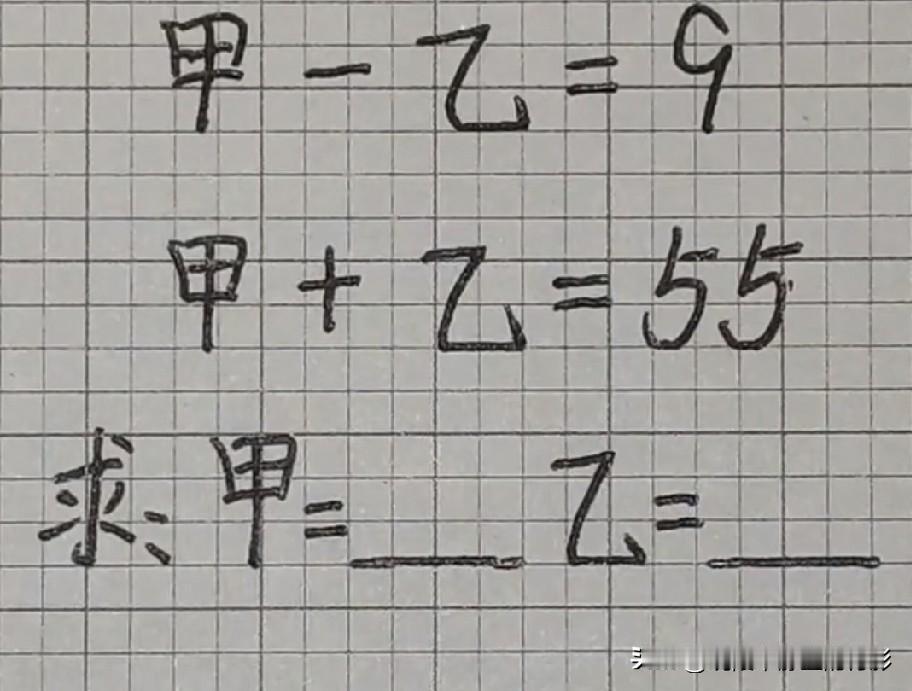 甲－乙=9
甲+乙=55
求:甲=___ 乙=___